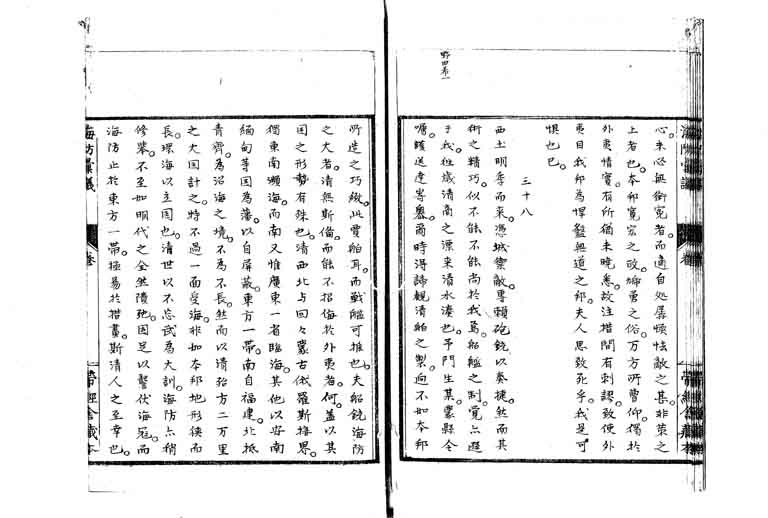 心未必無術寃者而適自処孱愞怯敵之甚非策之
上者也。本邦寛宏之政締勇之俗万方所曹仰。獨於
外夷情實有所猶未曉悉故注措間有刺謬致使外
夷目我邦為悍盭無道之邦。夫人思致死乎我是可
惧也已。
三十八
西土明季而来。憑城禦敵。專頼砲銃以奏捷然而其
術之精巧似不能不能尚於我焉舶艦之制寛亦遜
于我往歳清商之漂来清水湊也。予門生某稟縣令
囑護送達㟢嶴爾時得諦観清舶之製。迥不如本邦
所造之巧緻。此賣舶耳。而戰艦可推也。夫船銃海防
之大者清無斯備而能不招侮於外夷者。何。盖以其
国之形勢有殊也。清西北与回々蒙古俄羅斯接界。
獨東南瀕海。而南又惟廣東一省臨海。其他以安南
緬甸等国為藩。以自屏蔽。東方一帶。南自福建。北抵
青齊。為沿海之境。不為不長。然而以清殆方二万里
之大国計之。特不過一面受海。非如本邦地形狭而
長環海以立国也。清世以不忘武為大訓。海防亦稍
修挙。不至如明代之全然隳弛。固足以讋伏海寇。而
海防止於東方一帶。極易於措畫。斯清人之至幸也。
海防彙議
卷
帶經舎藏本